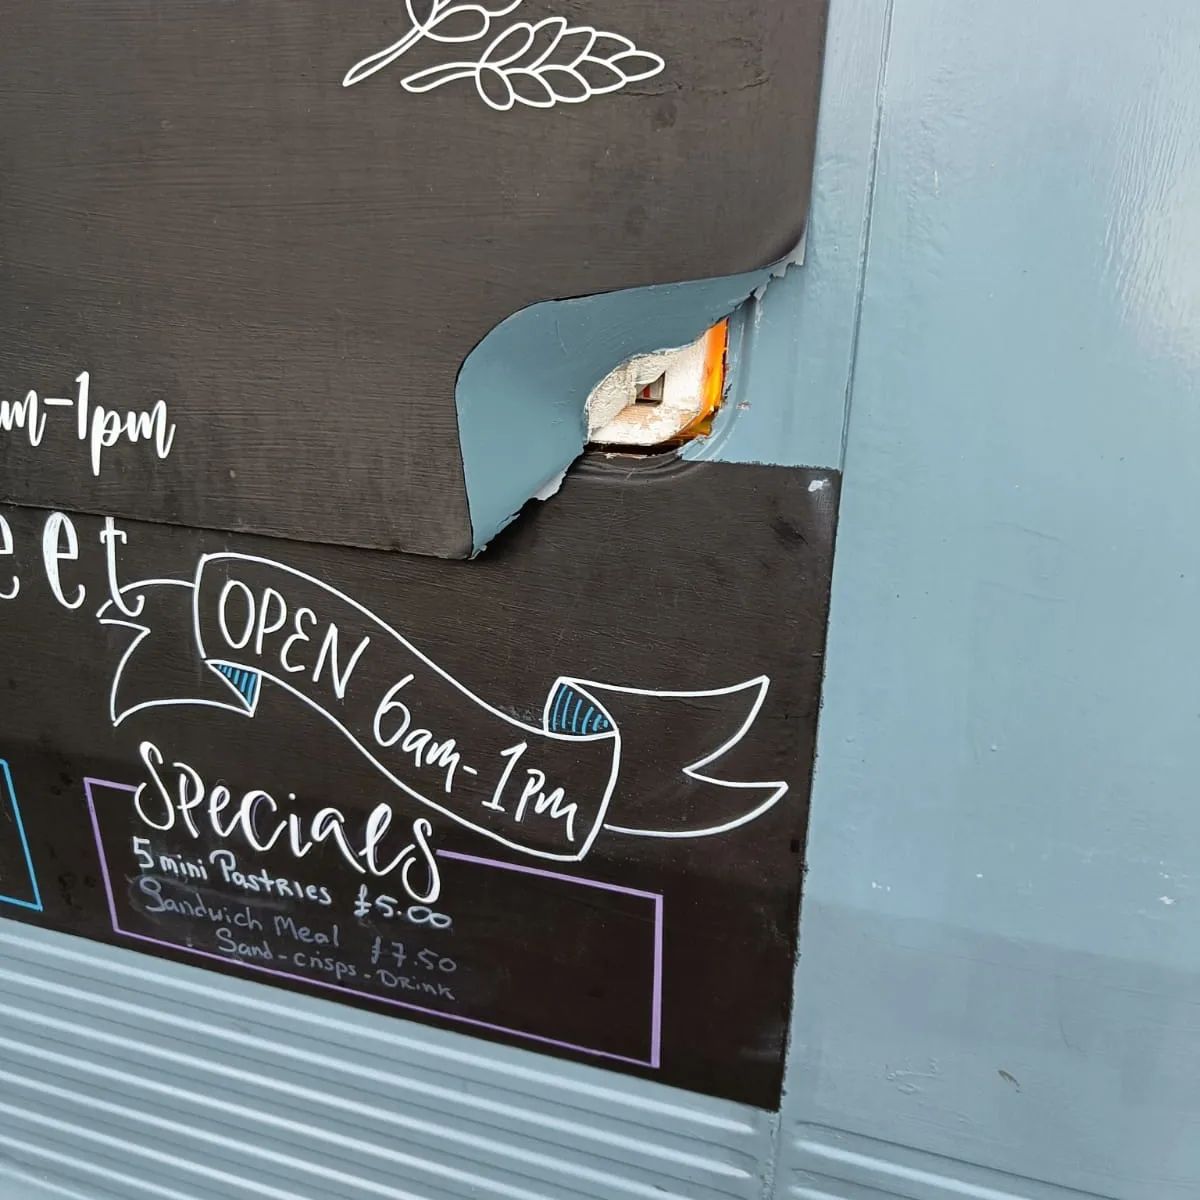 m-1pm
eet
OPEN 6am-1pm
Specials
5 mini Pastries £5.00
Sandwich Meal £7.50
Sand-crisps-Drink